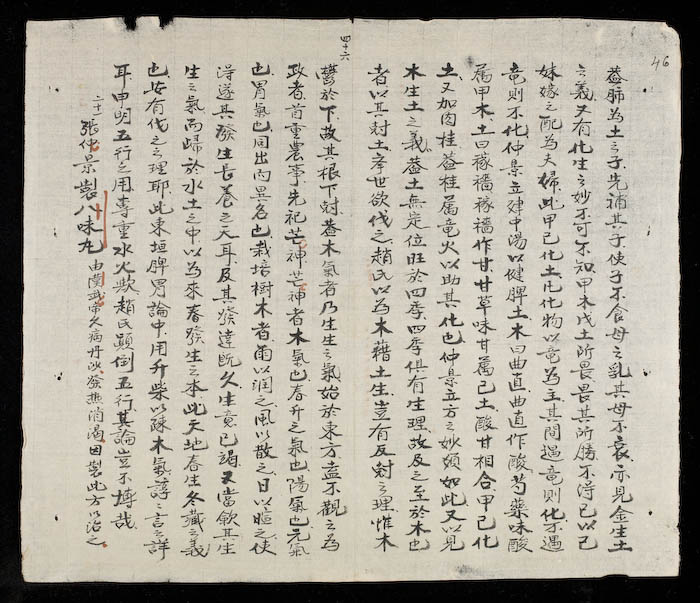 46
蓋肺為土之子先補其子使子不食母之乳其母不衰亦見金生土
之義又有化生之妙不可不知甲木戊土所畏畏其所勝不得已以己
妹嫁之配為夫婦此甲己化土凡化物以竜為主其間遇竜則化不遇
竜則不化仲景立建中湯以健脾土木曰曲直曲直作酸芍藥味酸
属甲木土曰稼穡稼穡作甘甘草味甘属己土酸甘相合甲己化
土又加肉桂蓋桂属竜火以助其化也仲景立方之妙類如此又以見
木生土之義蓋土無定位旺於四季四季俱有生理故及之至於木也
者以其尅土举世欲伐之趙氏以為木藉土生豈有反尅之理惟木
四十六
鬱於下故其根下尅蓋木氣者乃生生之氣始於東方盍不觀之為
政者首重農事先祀芒神芒神者木氣也春升之氣也陽氣也元氣
也胃氣也同出而異名也栽培樹木者雨以潤之風以散之日以暄之使
淂遂其發生長養之天耳及其發達既久生意已竭又當歛其生
生之氣而歸於水土之中以為來春發生之本此天地春生冬藏之義
也安有伐之之理耶此東垣脾胃論中用升柴以疎木氣諄諄言之詳
耳申明五行之用專重水火欤趙氏顛倒五行其論豈不博哉
二十一 張仲景製八味丸 由漢武帝久病丹沙發熱消渴因製此方以治之